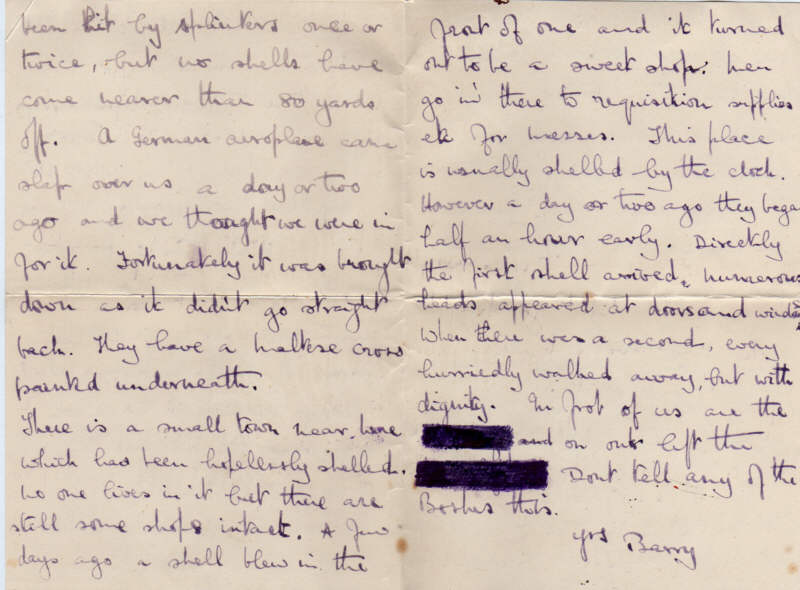 been hit by splinters once or
twice, but no shells have
come nearer than 80 yards
off. A German aeroplane came
slap over us a day or two
ago and we thought we were in
for it. Fortunately it was brought
down as it didn't go straight
back. They have a maltese cross
painted underneath.
There is a small town near here
which has been hopelessly shelled.
No one lives in it but there are
still some shops intact. A few
days ago a shell blew in the
front of one and it turned
out to be a sweet shop. Men
go in there to requisition supplies
etc for messes. This place
is usually shelled by the clock.
However a day or two ago they began
half an hour early. Directly
the first shell arrived, numerous
heads appeared at doors and windows
When there was a second, every
hurriedly walked away, but with
dignity. In frot of us are the
and on our left the
Dont tell any of the
Boshes this.
yrs Barry